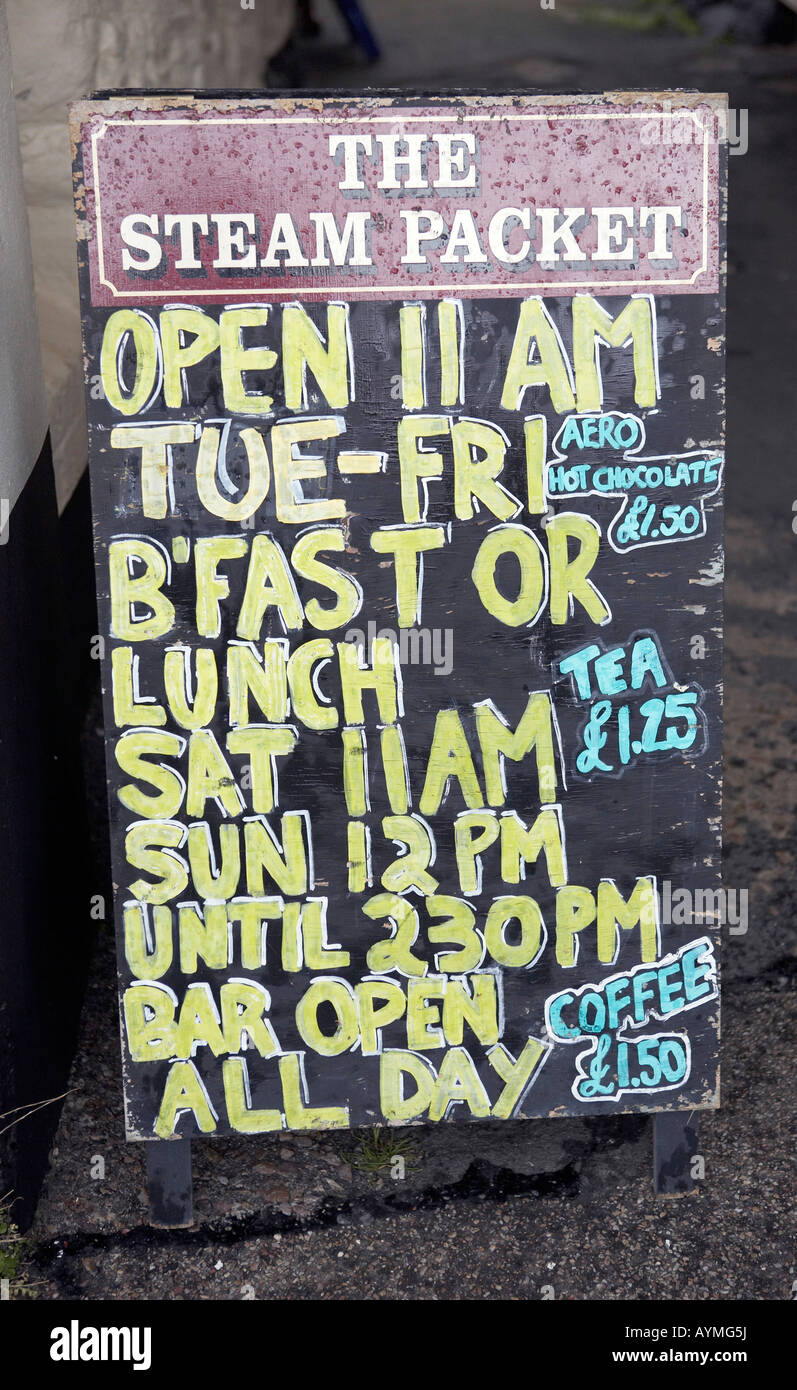 THE
STEAM PACKET
OPEN 11 AM
TUE-FRI
AERO
HOT CHOCOLATE
£1.50
B'FAST OR
LUNCH
TEA
£1.25
SAT 11AM
SUN 12PM
UNTIL 230PM
BAR OPEN
ALL DAY
COFFEE
£1.50
alamy
Image ID: AYMG5J
www.alamy.com